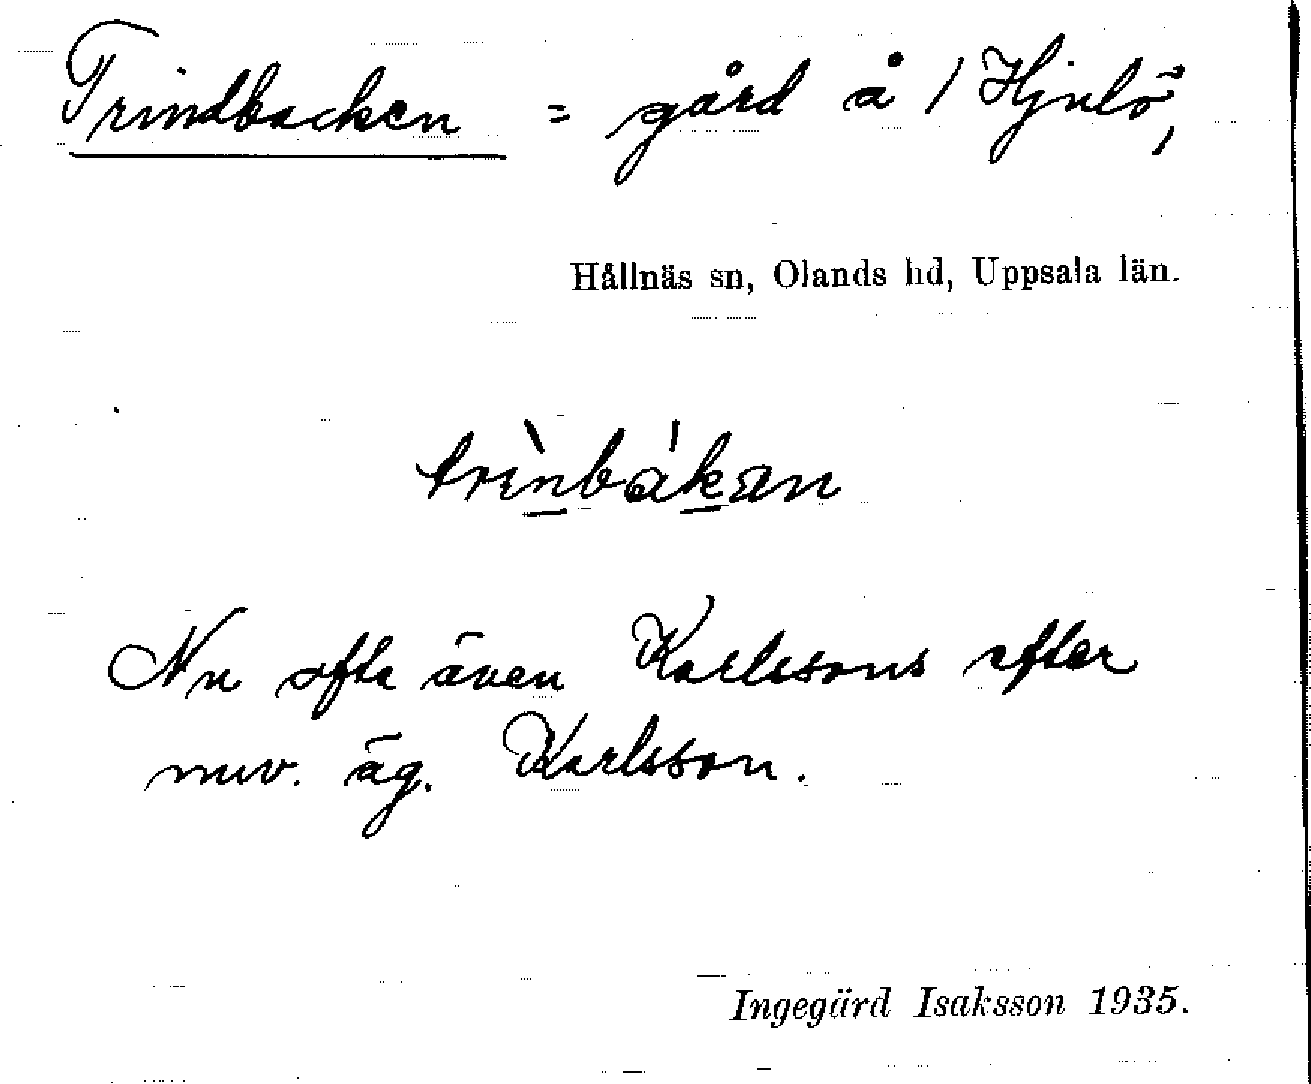 Trindbacken = gård å 1 Hjälö,
Hållnäs sn, Olands hd, Uppsala län.
trìnbákan
Nu ofta även Karlssons efter
nuv. äg. Karlsson.
Ingegärd Isaksson 1935.